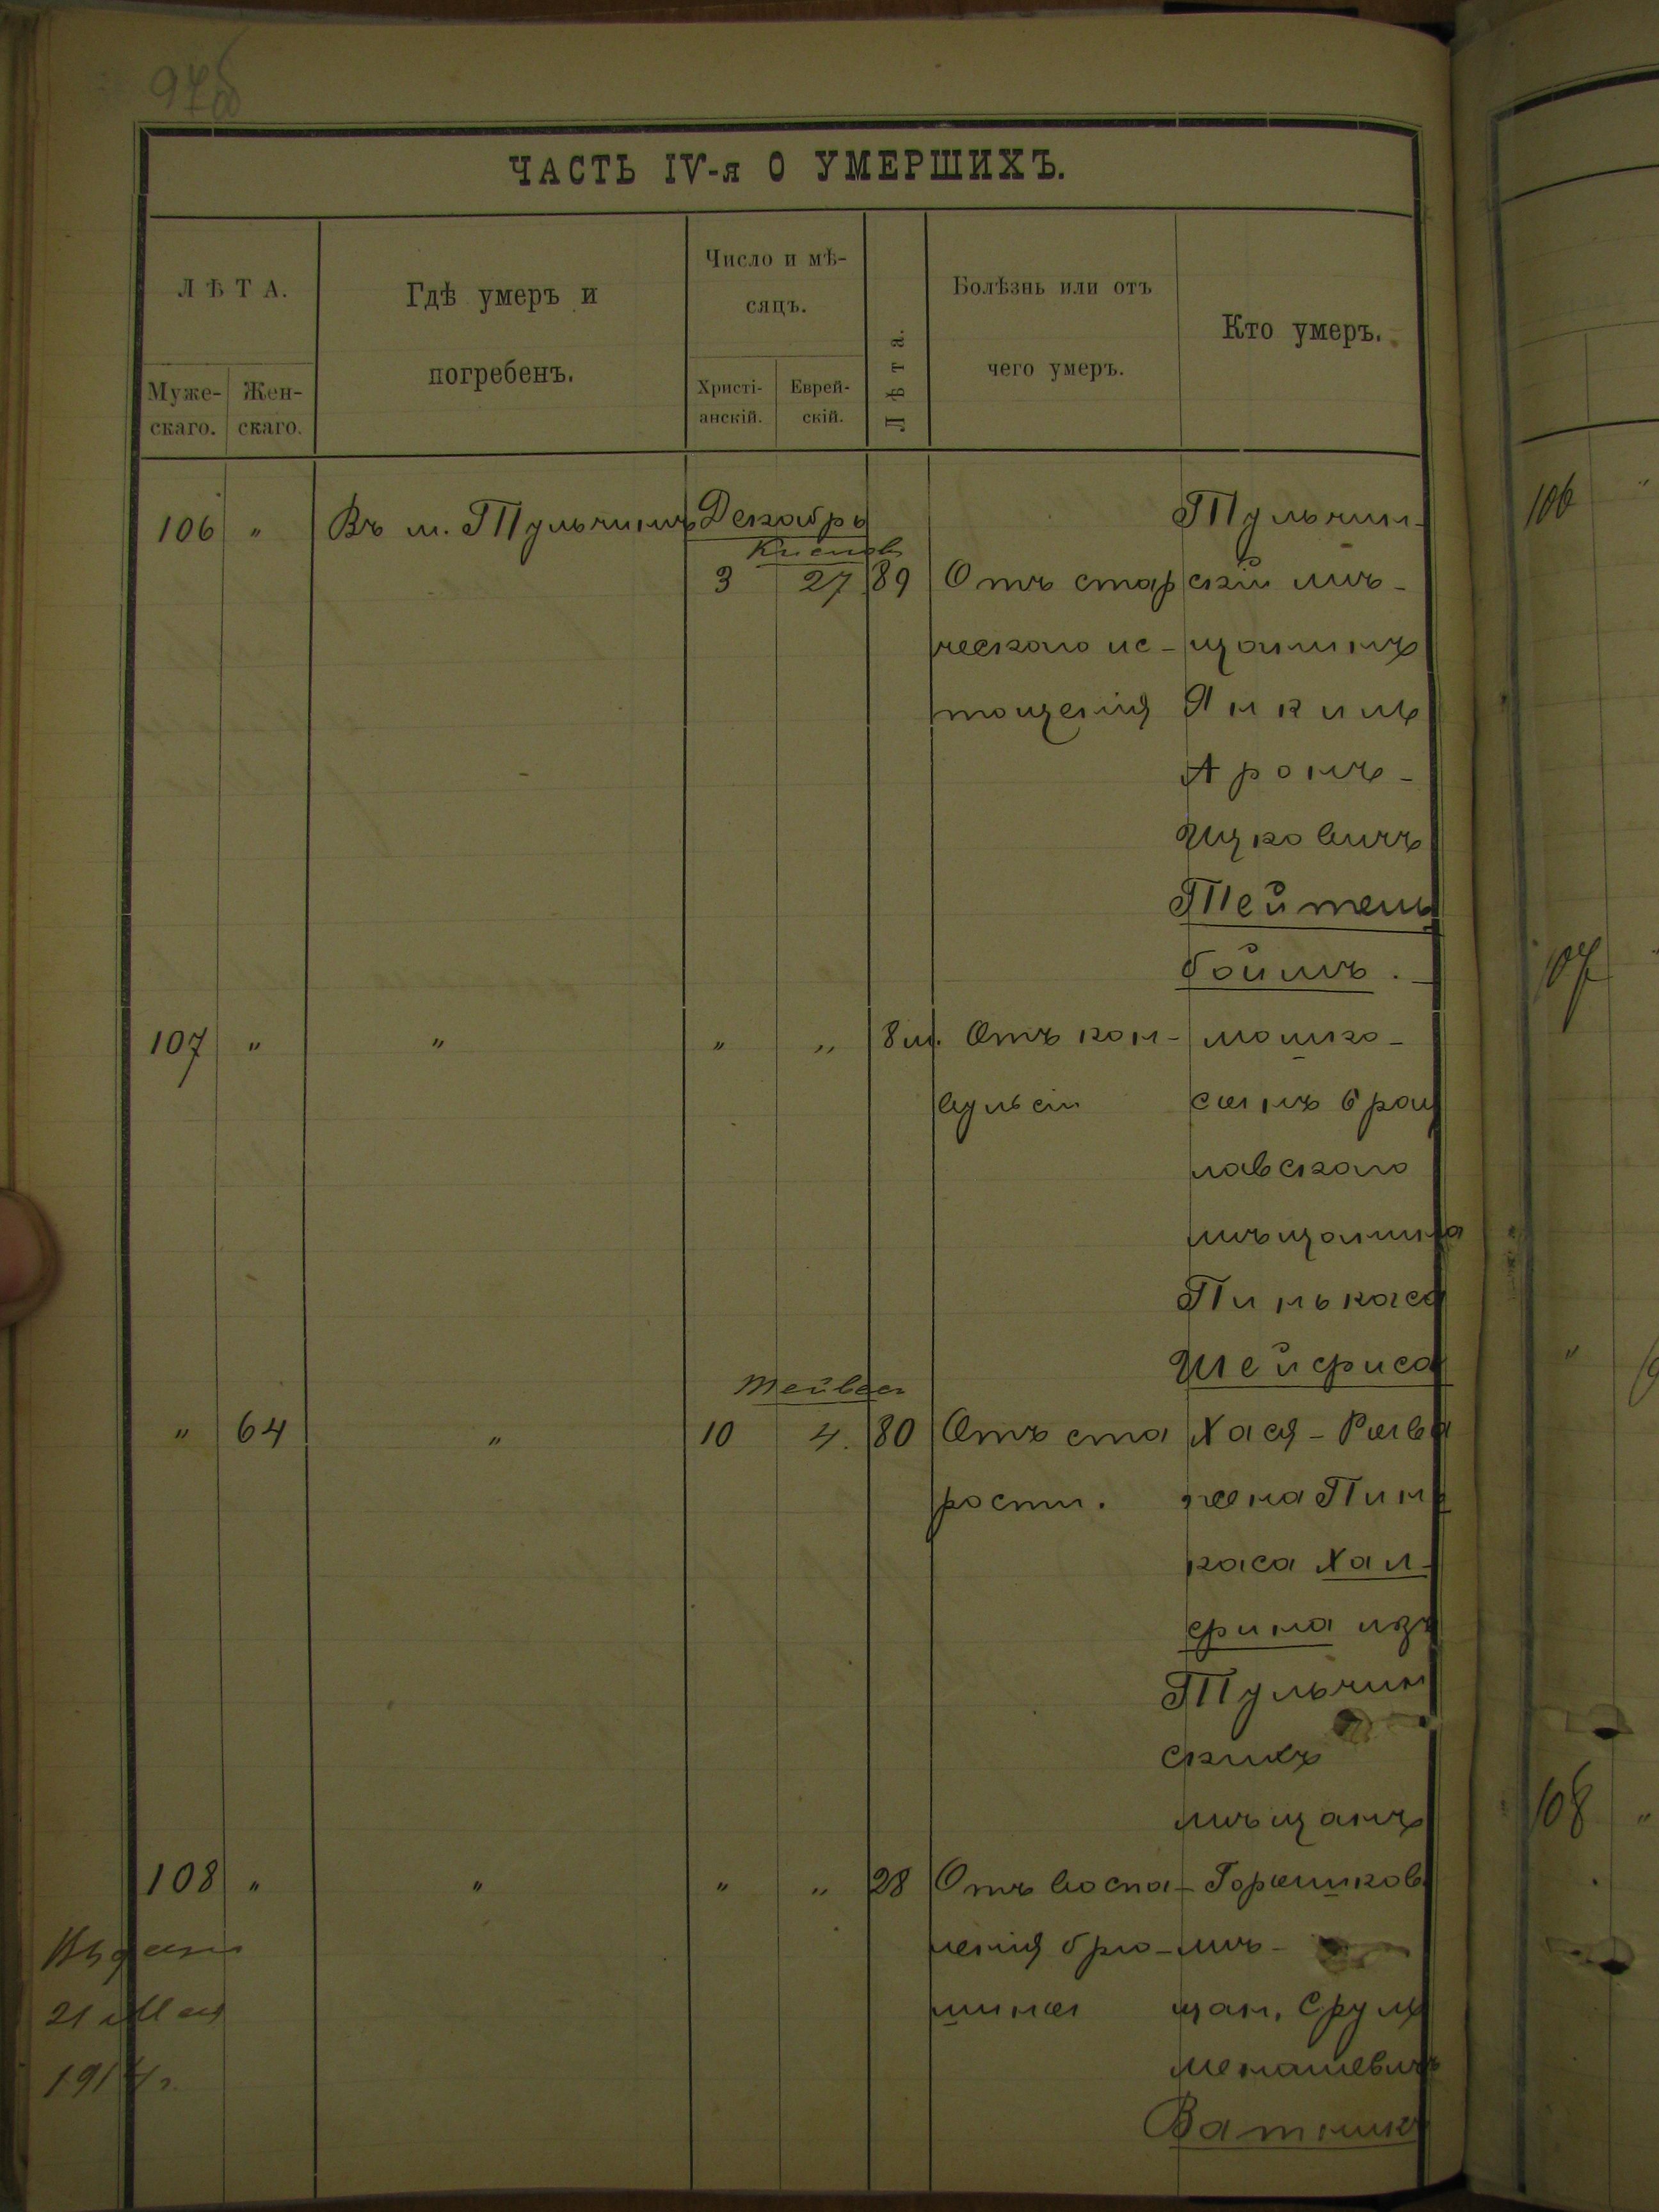 97об
ЧАСТЬ IV-я О УМЕРШИХЪ.
ЛѢТА.
Муже-
скаго.
Жен-
скаго.
Гдѣ умеръ и
погребенъ.
Число и мѣ-
сяцъ.
Христі-
анскій.
Еврей-
скій.
Лѣта.
Болѣзнь или отъ
чего умеръ.
Кто умеръ.
106 " Въ м. Тульчинѣ Декабрь
Кислевъ
3 27 89
Отъ стар
ческаго ис-
тощенія
Тульчин-
скій мѣ-
щанинъ
Янкиль
Аронъ-
Ицковичъ
Тейтель
боймъ.
107 " " " " 8 м.
Отъ кон-
вульсіи
Мошко-
сынъ брац
лавскаго
мѣщанина
Пинькаса
Шейфиса
" 64 "
Тейвес
10 4. 80
Отъ ста
рости.
Хася-Рыва
жена Пинь
каса Хал-
фина изъ
Тульчин
скихъ
мѣщанъ
108 " " " " 28
Отъ воспа-
ленія брю-
шины
Горшков.
мѣ-
щан. Сруль
Менашевичъ
Ватникъ
Выдан
21 Мая
1914 г.
106 "
107
"
108 "